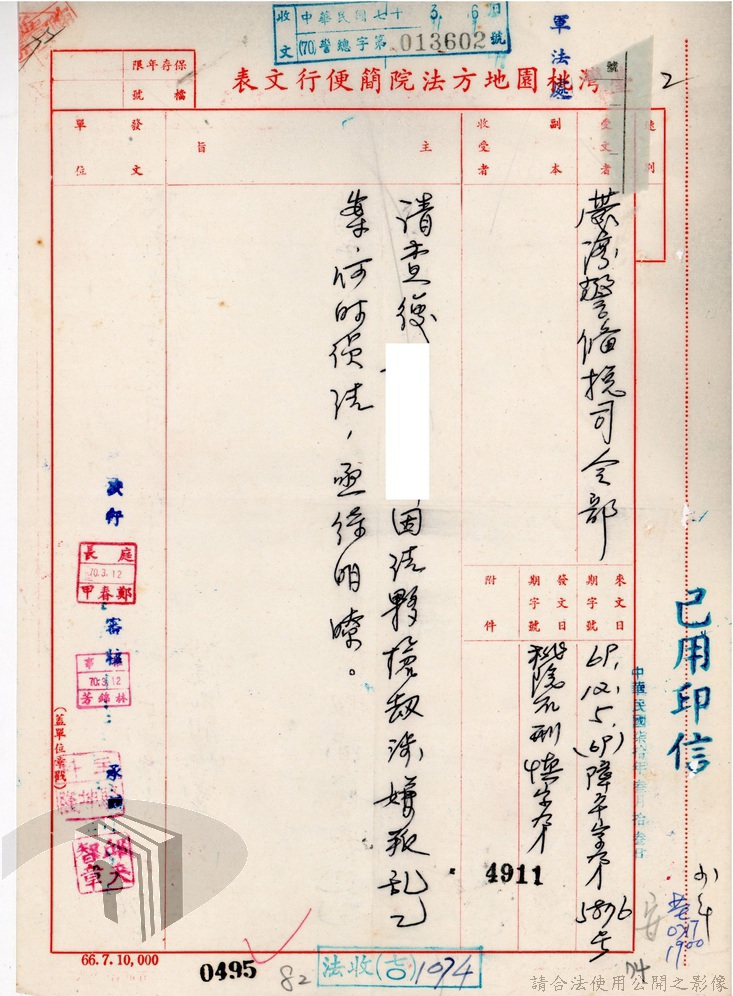 收文
中華民國七十 3. 6 日
(70)警總字第 013602 號
軍法處
2
保存年限
檔號
灣桃園地方法院簡便行文表
速別
受文者
副本
收受者
主旨
發文
單位
臺灣警備總司令部
來文日期字號
69.12.5.(69)障平字第5896號
發文日期字號
桃院刑慎字第
4911
附件
請查復
因結夥搶劫涉嫌叛亂乙
案,何時偵結,亟待明瞭。
中華民國柒拾年叁月拾叁日
已用印信
決行
庭長
70.3.12
鄭春甲
審核:
70.3.12
林錦芳
(蓋單位章戳)
66.7.10,000
0495
82
法收(吉)1074
74
0317
1900
請合法使用公開之影像